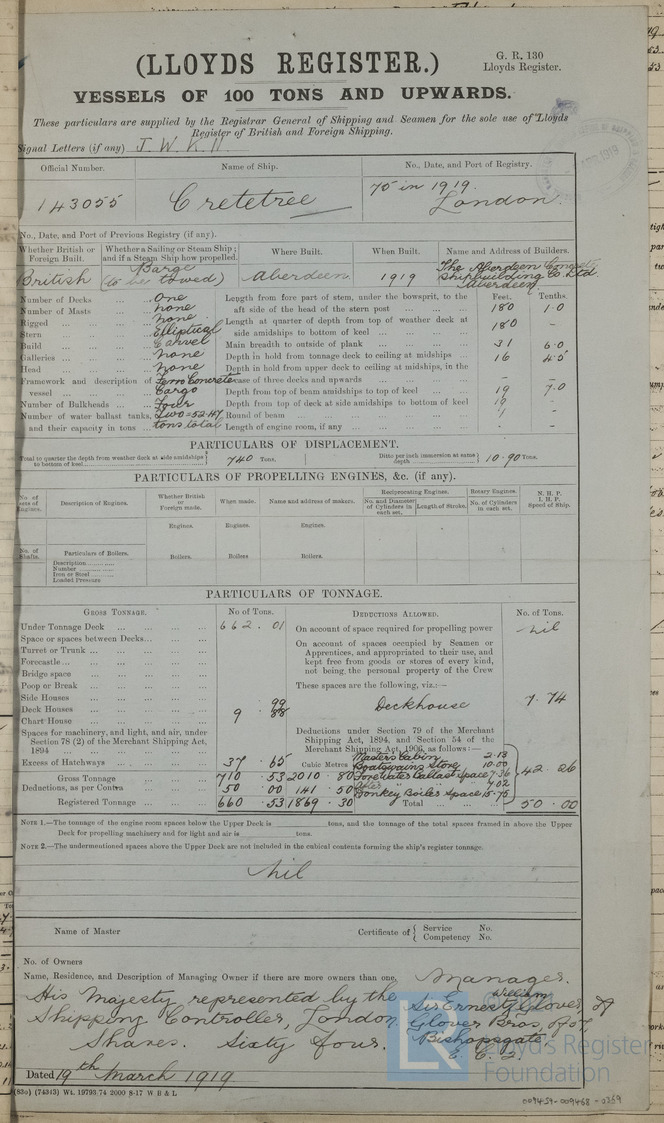 (LLOYDS REGISTER.)
G. R. 130
Lloyds Register.
VESSELS OF 100 TONS AND UPWARDS.
These particulars are supplied by the Registrar General of Shipping and Seamen for the sole use of Lloyds
Register of British and Foreign Shipping.
Signal Letters (if any) J. W. K.
Official Number. Name of Ship. No., Date, and Port of Registry.
143055 Cretetree 75 in 1919. London
No., Date, and Port of Previous Registry (if any).
Whether British or Foreign Built. Whether a Sailing or Steam Ship; and if a Steam Ship how propelled. Where Built. When Built. Name and Address of Builders.
British Barge (to be towed) Aberdeen 1919 The Aberdeen Concrete Shipbuilding Co. Ltd Aberdeen
Number of Decks One
Number of Masts none
Rigged none
Stern Elliptical
Build Carvel
Galleries none
Head none
Framework and description of vessel Ferro Concrete Cargo
Number of Bulkheads Four
Number of water ballast tanks, and their capacity in tons Two = 52.47 tons total
Feet. Tenths.
Length from fore part of stem, under the bowsprit, to the aft side of the head of the stern post 180 1.0
Length at quarter of depth from top of weather deck at side amidships to bottom of keel 180 -
Main breadth to outside of plank 31 6.0
Depth in hold from tonnage deck to ceiling at midships 16 4.5
Depth in hold from upper deck to ceiling at midships, in the case of three decks and upwards - -
Depth from top of beam amidships to top of keel 19 7.0
Depth from top of deck at side amidships to bottom of keel 19 -
Round of beam -
Length of engine room, if any - -
PARTICULARS OF DISPLACEMENT.
Total to quarter the depth from weather deck at side amidships to bottom of keel 740 Tons. Ditto per inch immersion at same depth 10.90 Tons.
PARTICULARS OF PROPELLING ENGINES, &c. (if any).
No. of sets of Engines. Description of Engines. Whether British or Foreign made. When made. Name and address of makers. Reciprocating Engines. Rotary Engines. N. H. P. I. H. P. Speed of Ship.
No. and Diameter of Cylinders in each set. Length of Stroke. No. of Cylinders in each set.
Engines. Engines. Engines.
No. of Shafts. Particulars of Boilers. Boilers. Boilers Boilers.
Description
Number
Iron or Steel
Loaded Pressure
PARTICULARS OF TONNAGE.
GROSS TONNAGE. No of Tons. DEDUCTIONS ALLOWED. No. of Tons.
Under Tonnage Deck 662.01
Space or spaces between Decks
Turret or Trunk
Forecastle
Bridge space
Poop or Break
Side Houses
Deck Houses 9
Chart House
Spaces for machinery, and light, and air, under Section 78 (2) of the Merchant Shipping Act, 1894
Excess of Hatchways 37.65
Cubic Metres
Gross Tonnage 710.53 2010.80
Deductions, as per Contra 50.00 141.50
Registered Tonnage 660.53 1869.30
On account of space required for propelling power nil
On account of spaces occupied by Seamen or Apprentices, and appropriated to their use, and kept free from goods or stores of every kind, not being the personal property of the Crew
These spaces are the following, viz.:—
Deckhouse 7.74
Deductions under Section 79 of the Merchant Shipping Act, 1894, and Section 54 of the Merchant Shipping Act, 1906, as follows:—
Masters Cabin 2.18
Boatswains Store 10.00
Fore Water Ballast Space 7.36
After 7.02
Donkey Boiler Space 15.70
42.26
Total 50.00
NOTE 1.—The tonnage of the engine room spaces below the Upper Deck is tons, and the tonnage of the total spaces framed in above the Upper
Deck for propelling machinery and for light and air is tons.
NOTE 2.—The undermentioned spaces above the Upper Deck are not included in the cubical contents forming the ship's register tonnage.
nil
Name of Master Certificate of { Service No. Competency No.
No. of Owners
Name, Residence, and Description of Managing Owner if there are more owners than one,
His Majesty represented by the
Shipping Controller, London
Shares. Sixty four.
Manager.
Sir Ernest William Glover of
Glover Bros, of 57,
Bishopsgate
E. C. 2.
Dated 19th March 1919
(830) (74343) Wt. 19793.74 2000 8-17 W B & L
Lloyd's Register
Foundation
009459-009468-0369